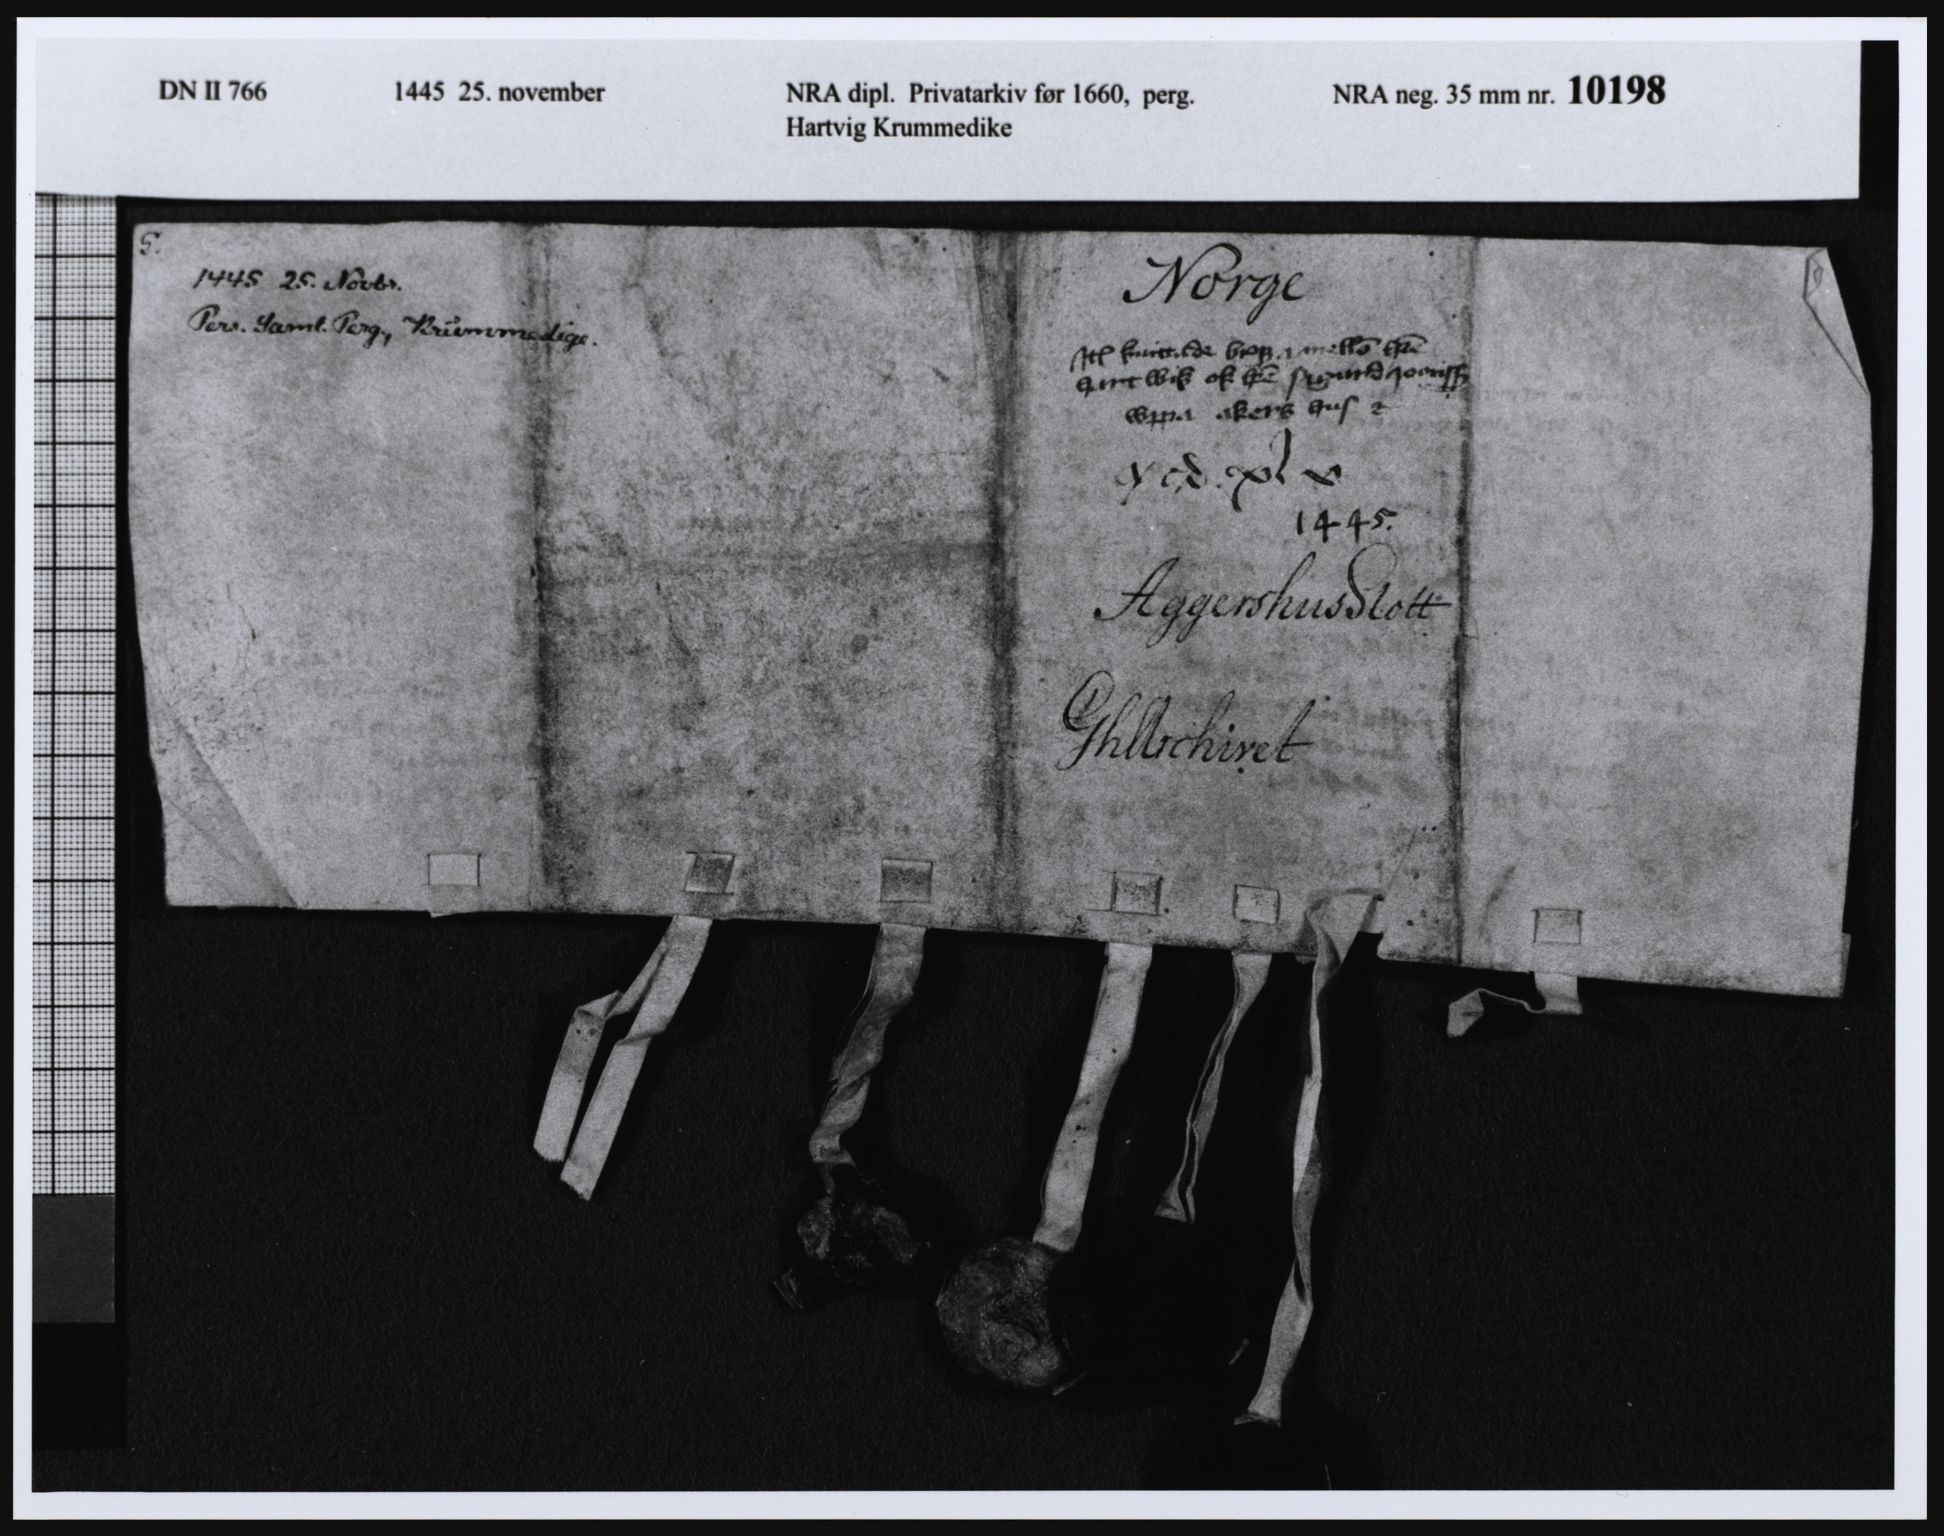 DN II 766 1445 25. november NRA dipl. Privatarkiv før 1660, perg. NRA neg. 35 mm nr. 10198
Hartvig Krummedike
5.
1445 25. Novbr.
Pers. Saml. Perg., Krummedige.
Norge
mellō
ok
akers hus
cd. xl v
1445.
Aggershus Slott
Gh Archivet